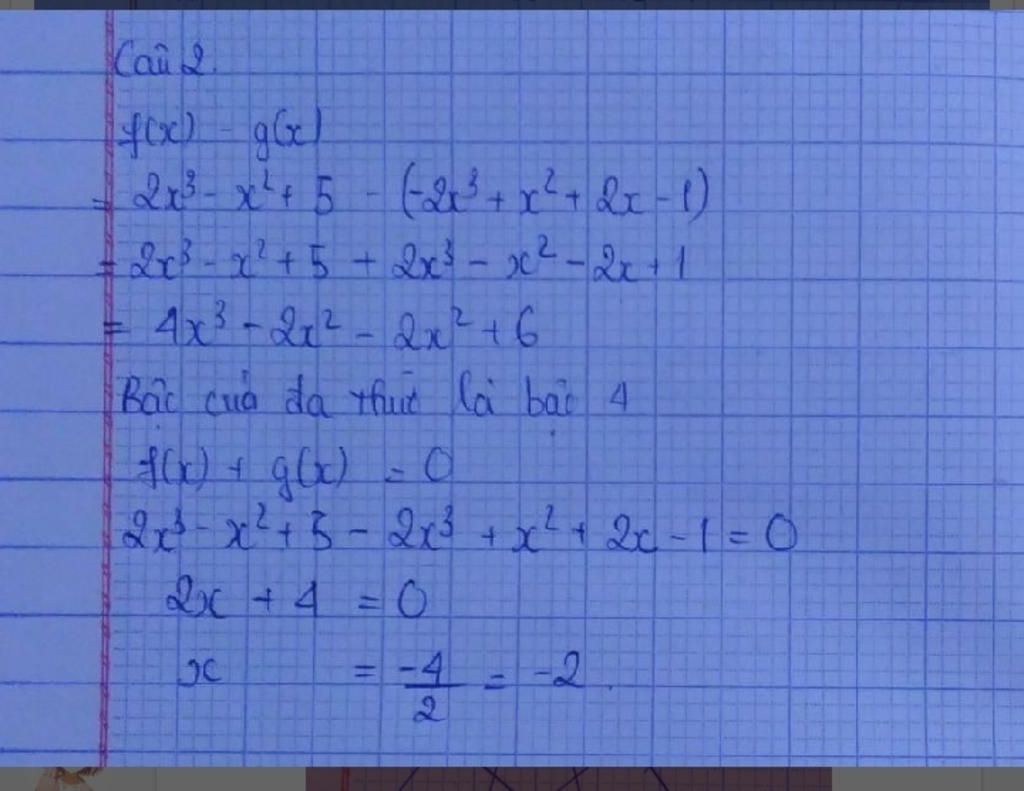 Câu 2.
f(x) - g(x)
= 2x³ - x² + 5 - (-2x³ + x² + 2x - 1)
= 2x³ - x² + 5 + 2x³ - x² - 2x + 1
= 4x³ - 2x² - 2x² + 6
Bậc của đa thức là bậc 4
f(x) + g(x) = 0
2x³ - x² + 5 - 2x³ + x² + 2x - 1 = 0
2x + 4 = 0
x = -4/2 = -2.